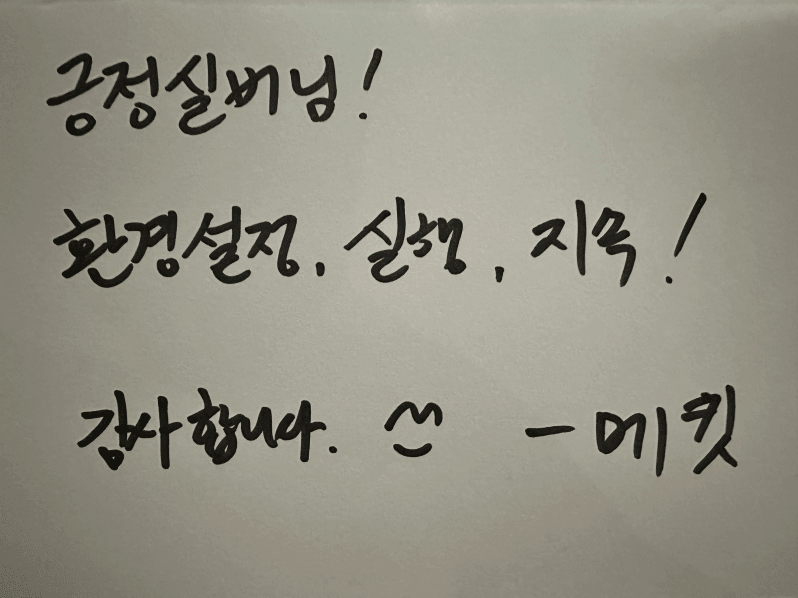 긍정실버님!
환경설정, 실행, 지목!
감사합니다. ^^ - 메킷